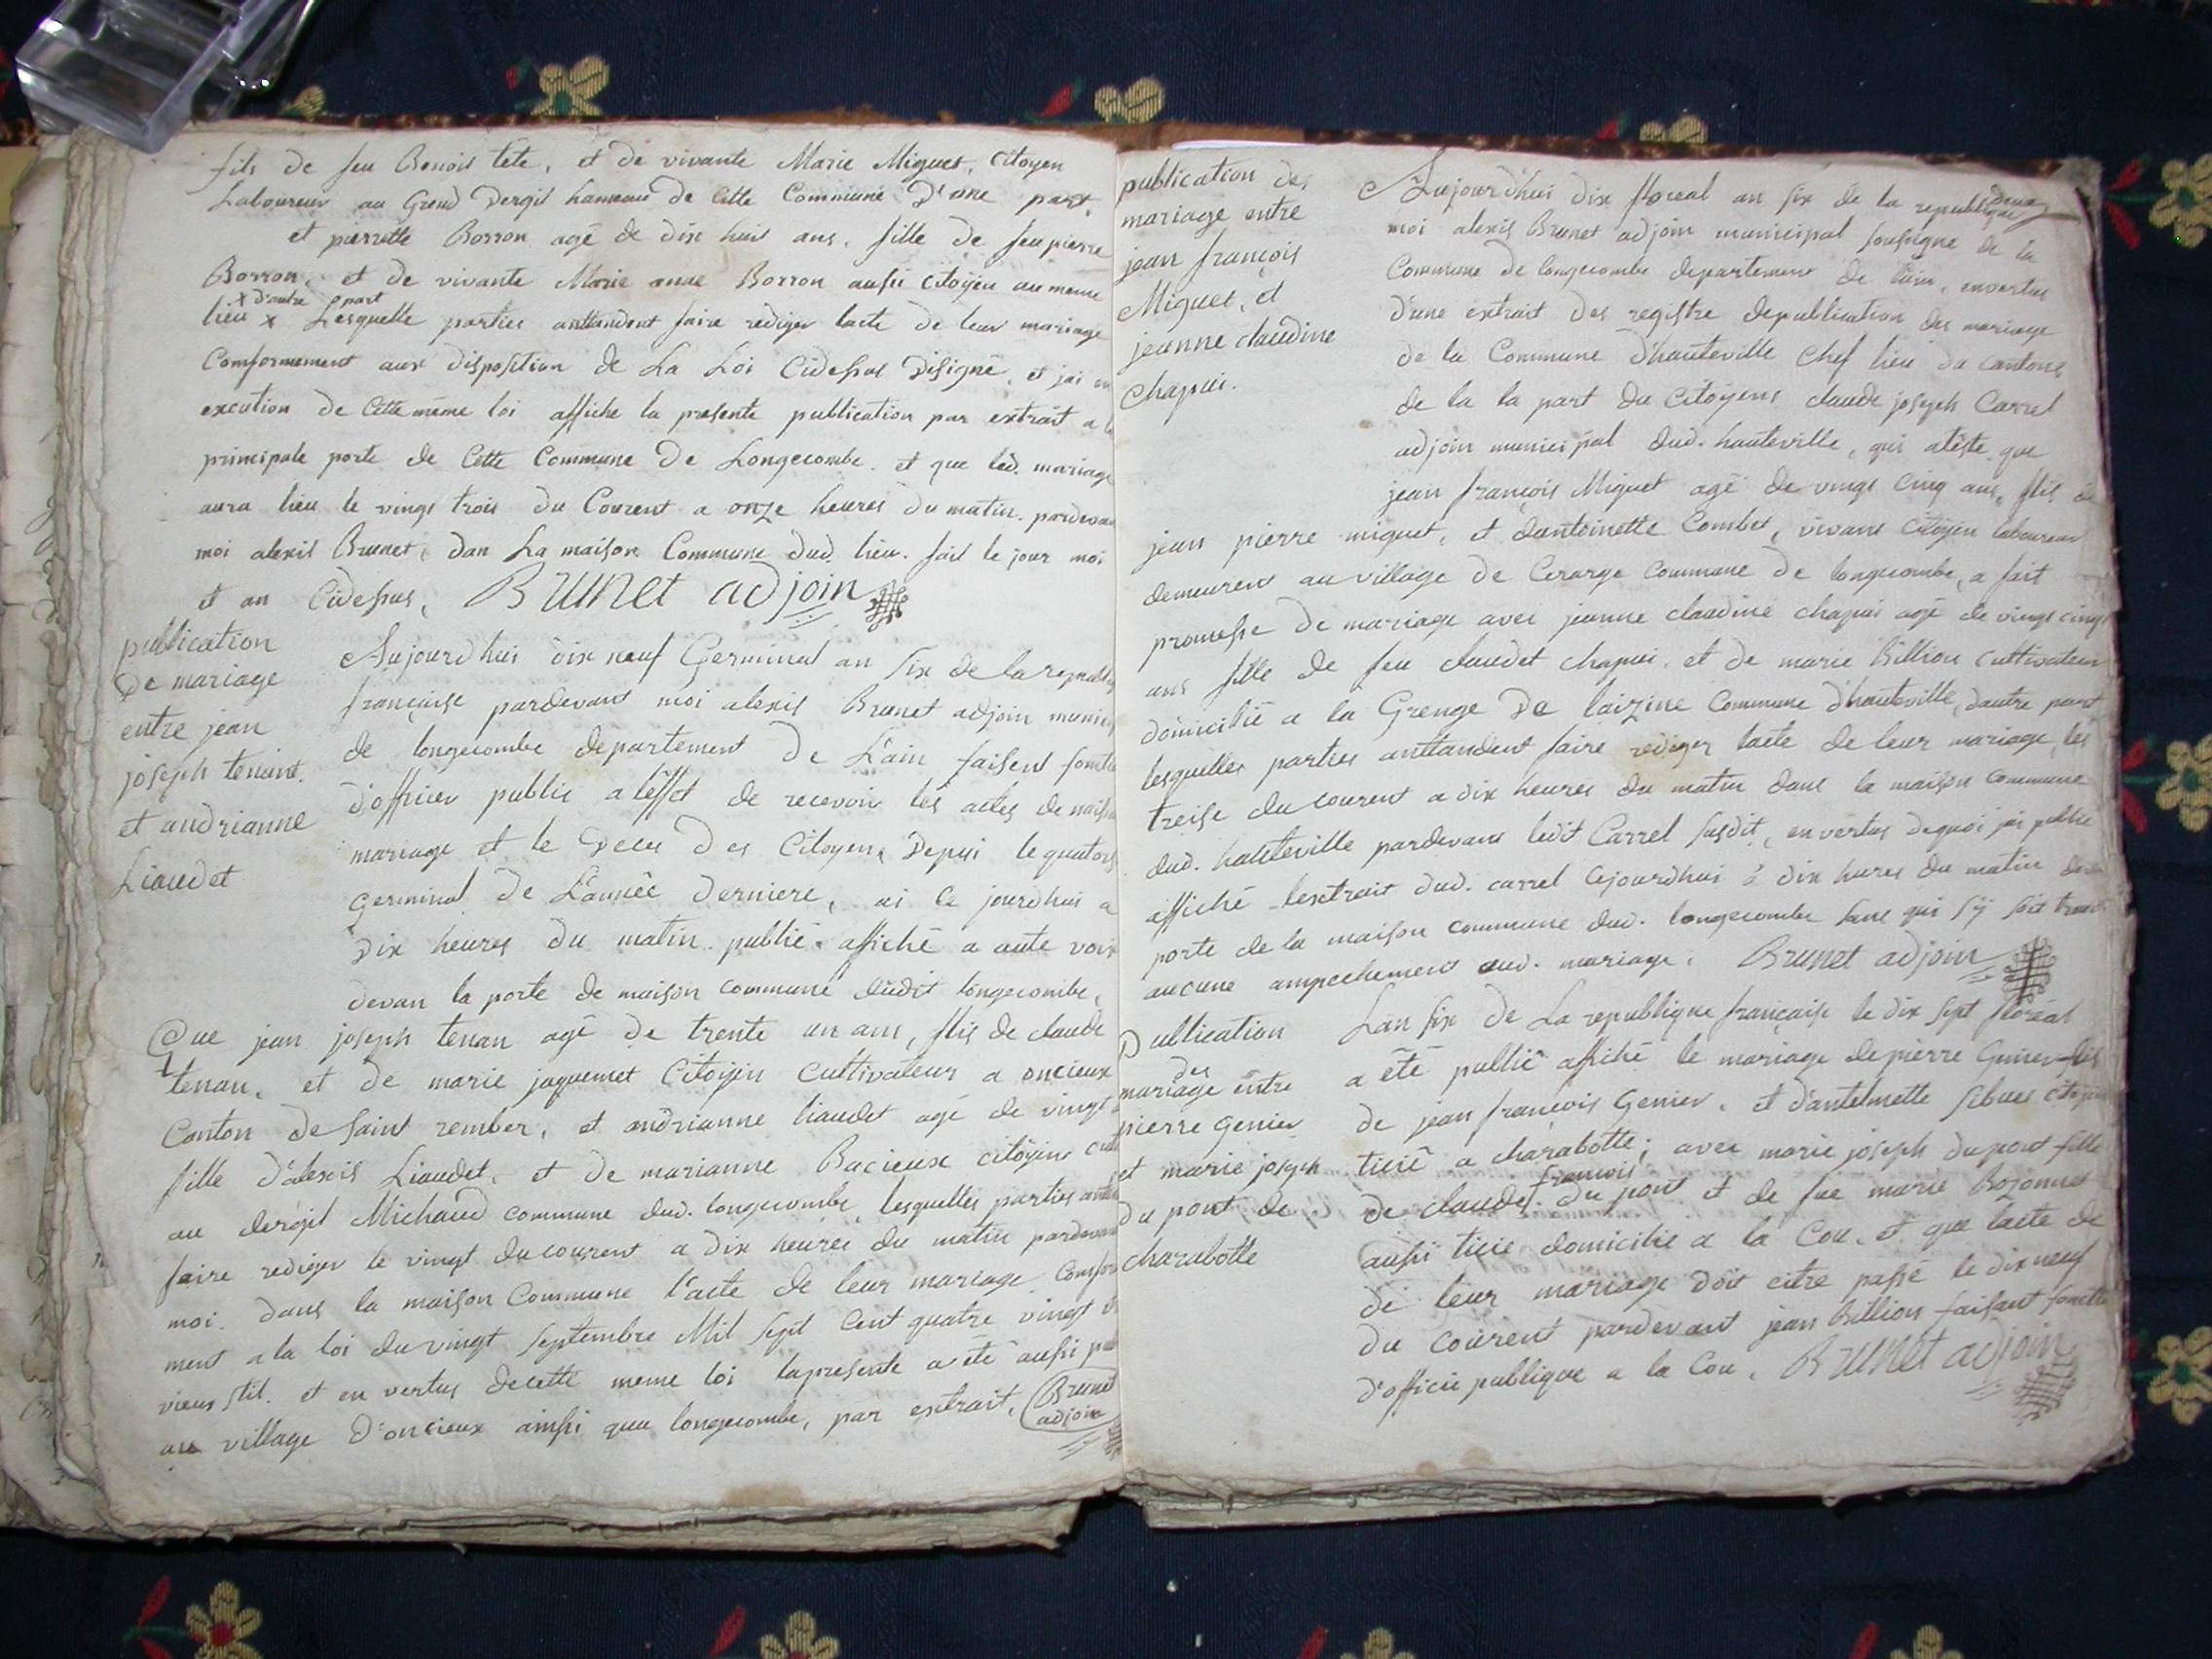 fils de feu Benoit tete, et de vivante Marie Miguet, Citoyen
Laboureur au Grend Dergit hameau de Cette Commune D'une part,
et pierrette Borron agé de dix huit ans, fille de feu pierre
Borron, et de vivante Marie anne Borron aussi Citoyen au meme
x d'autre part
lieu x Lesquelle parties anttandent faire rediger lacte de leur mariage
Comformement aux disposition de La Loi Cidessus Disigné, et jai en
excution de Cette même loi affiche la presente publication par extrait a la
principale porte de Cette Commune De Longecombe. et que led. mariage
aura lieu le vingt trois du Courent a onze heures du matin. pardevan
moi alexis Brunet, dan La maison Commune dud. lieu. fait le jour moi
et an Cidessus, Brunet adjoin
publication
De mariage
entre jean
joseph tenant.
et andrianne
Liaudet
Aujourdhui dix neuf Germinal an six de la republi
française pardevant moi alexis Brunet adjoin munici
de longecombe departement de L'ain faisent fonctio
d'officier public a leffet de recevoir les actes de naissa
mariage et le Deces Des Citoyens Depui le quators
germinal de L'année derniere, ai Ce jourdhui a
dix heures du matin publié affiché a aute voix
devan la porte de maison commune dudit longecombe,
Que jean joseph tenan agé de trente un ans, fils de claude
tenan, et de marie jaquemet Citoyen Cultivateur a oncieux
Canton de saint rember, et andrianne liaudet agé de vingt
fille d'alexis Liaudet, et de marianne Bacieux citoyens cult
au dergit Michaud commune dud. longecombe, lesquelles parties antt
faire rediger le vingt du courent a dix heures du matin pardevant
moi. dans la maison Commune l'acte de leur mariage Comfor
ment a la loi du vingt septembre Mil sept Cent quatre vingt
vieux stil. et en vertus decette meme loi lapresente a été aussi pu
au village d'oncieux ainssi que longecombe, par extrait, Brunet
adjoin
publication des
mariage entre
jean françois
Miguet, et
jeanne claudine
Chapui.
Aujourd'hui dix floreal an six de la republique
moi alexis Brunet adjoin municipal soussigne de la
Commune de longecombe departement de lain, envertus
d'une extrait des registre depublication des mariage
de la Commune d'hauteville Chef lieu du cantons
de la la part du Citoyens claude joseph Carrel
adjoin municipal dud. hauteville, qui atéste que
jean françois Miguet agé de vingt cinq ans, fils de
jean pierre miguet, et dantoinette Combet, vivant Citoyen laboureur
demeurent au village de Cerarge commune de longecombe, a fait
promesse de mariage avec jeanne claudine chapui agé de vingt cinq
ans fille de feu claudet chapui. et de marie Billion cultivateur
domicilié a la Grenge de laizine Commune d'hauteville, dautre part
lesquelles parties anttandent faire rediger lacte de leur mariage les
treise du courent a dix heures du matin dans la maison commune
dud. hauteville pardevant ledit Carrel susdit, en vertus dequoi jai publié
affiché lextrait dud. carrel Cejourdhui a dix hures du matin devan
porte de la maison commune dud. longecombe sans qui s'y soit trouvé
aucune ampechement aud. mariage. Brunet adjoin
Publication
des
mariage entre
pierre genier
et marie joseph
Du pont de
charabotte
Lan six de La republique française le dix sept floréal
a été publié affiché le mariage depierre Genier fils
de jean françois Genier, et d'antelmette sibuet citoyen
ticié a charabotte; avec marie joseph dupont fille
françois
de claude du pont et de fue marie Bojonnet
aussi ticié domicilie a la Cou, et que lacte de
de leur mariage doit eitre passé le dix neuf
du courent pardevant jean Billion faisant foncti
d'officie publique a la Cou, Brunet adjoin